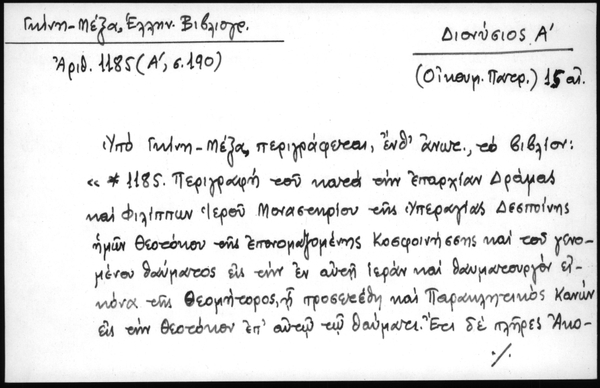 Γκίνη-Μέξα, Ἑλλην. Βιβλιογρ.
Ἀριθ. 1185 (Α', σ. 190)
Διονύσιος Α'
(Οἰκουμ. Πατρ.) 15 αἰ.
Ὑπό Γκίνη-Μέξα, περιγράφεται, ἔνθ' ἄνωτ., τό βιβλίον:
«*1185. Περιγραφή τοῦ κατά τήν ἐπαρχίαν Δράμας
καί Φιλίππων Ἱεροῦ Μοναστηρίου τῆς Ὑπεραγίας Δεσποίνης
ἡμῶν Θεοτόκου τῆς ἐπονομαζομένης Κοσφοινήσσης καί τοῦ γενο-
μένου θαύματος εἰς τήν ἐν αὐτῇ ἱεράν καί θαυματουργόν εἰ-
κόνα τῆς Θεομήτορος, ᾗ προσετέθη καί Παρακλητικός Κανών
εἰς τήν Θεοτόκον ἐπ' αὐτῷ τῷ θαύματι. Ἔτι δέ πλήρες Ἀκο-
./.